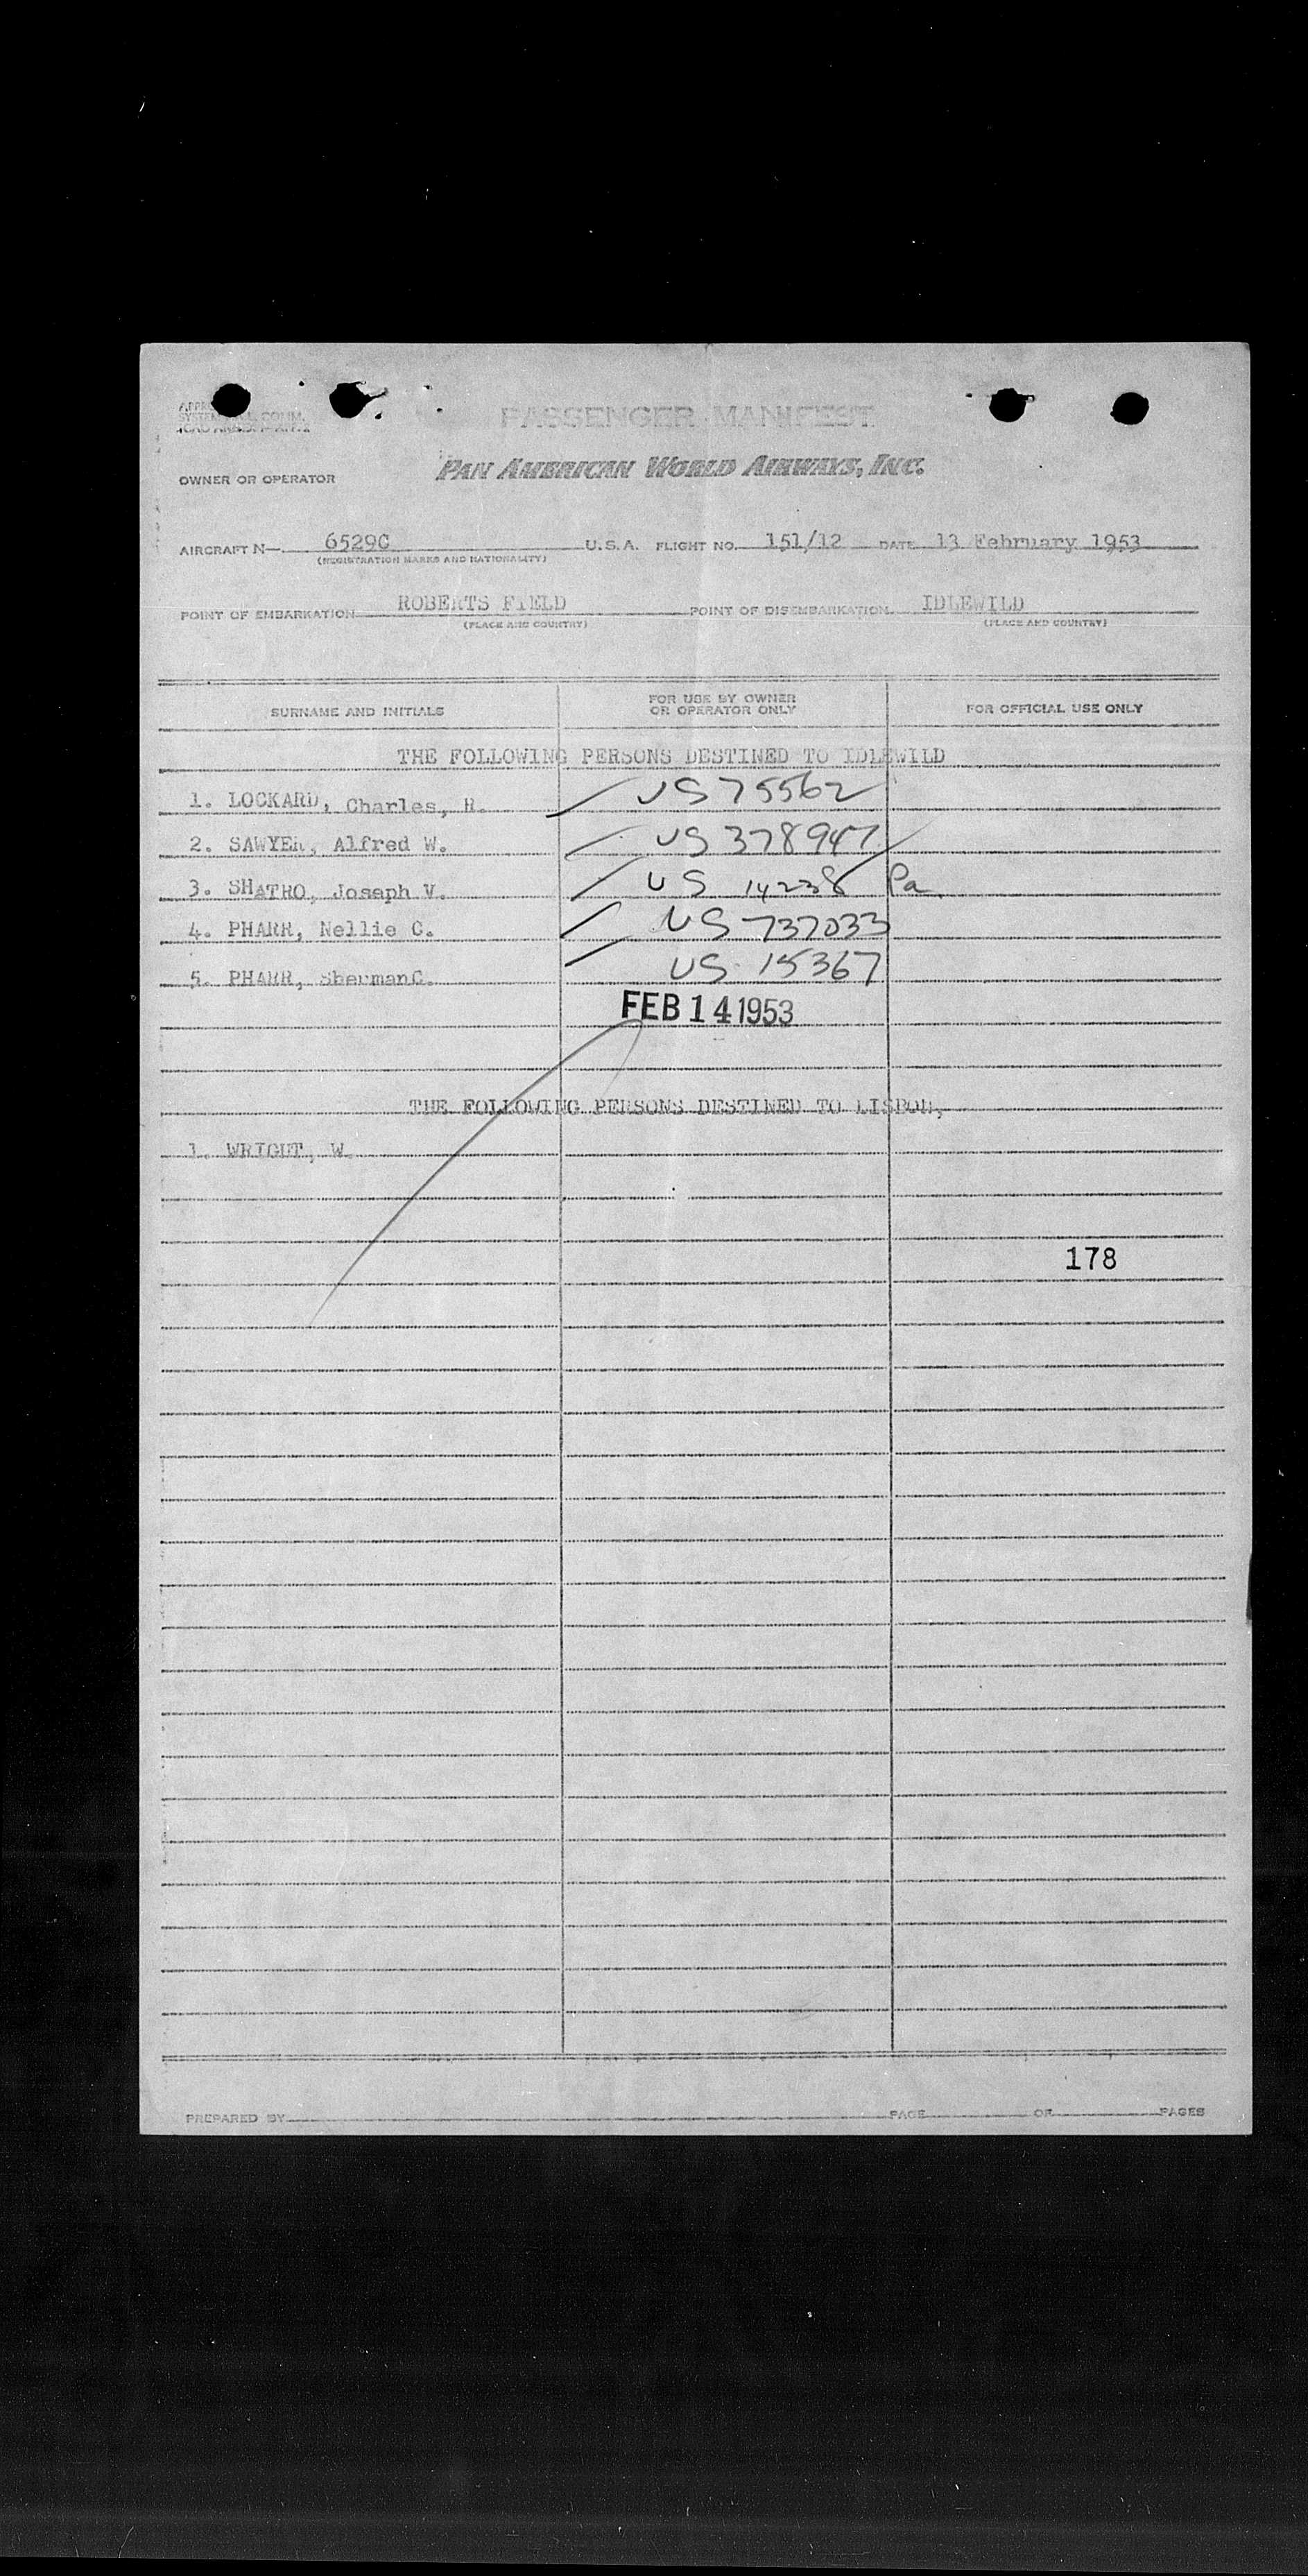 PASSENGER MANIFEST
PAN AMERICAN WORLD AIRWAYS, INC.
OWNER OR OPERATOR
AIRCRAFT N— 6529C U.S.A. FLIGHT NO. 151/12 DATE 13 February 1953
(REGISTRATION MARKS AND NATIONALITY)
POINT OF EMBARKATION ROBERTS FIELD POINT OF DISEMBARKATION IDLEWILD
(PLACE AND COUNTRY) (PLACE AND COUNTRY)
SURNAME AND INITIALS FOR USE BY OWNER OR OPERATOR ONLY FOR OFFICIAL USE ONLY
THE FOLLOWING PERSONS DESTINED TO IDLEWILD
1. LOCKARD, Charles, H. US 75562
2. SAWYER, Alfred W. US 378947
3. SHATRO, Joseph V. US 14238 Pa
4. PHARR, Nellie C. US 737033
5. PHARR, ShermanC. US 15367
FEB 14 1953
THE FOLLOWING PERSONS DESTINED TO LISBON,
1. WRIGHT, W.
178
PREPARED BY PAGE OF PAGES